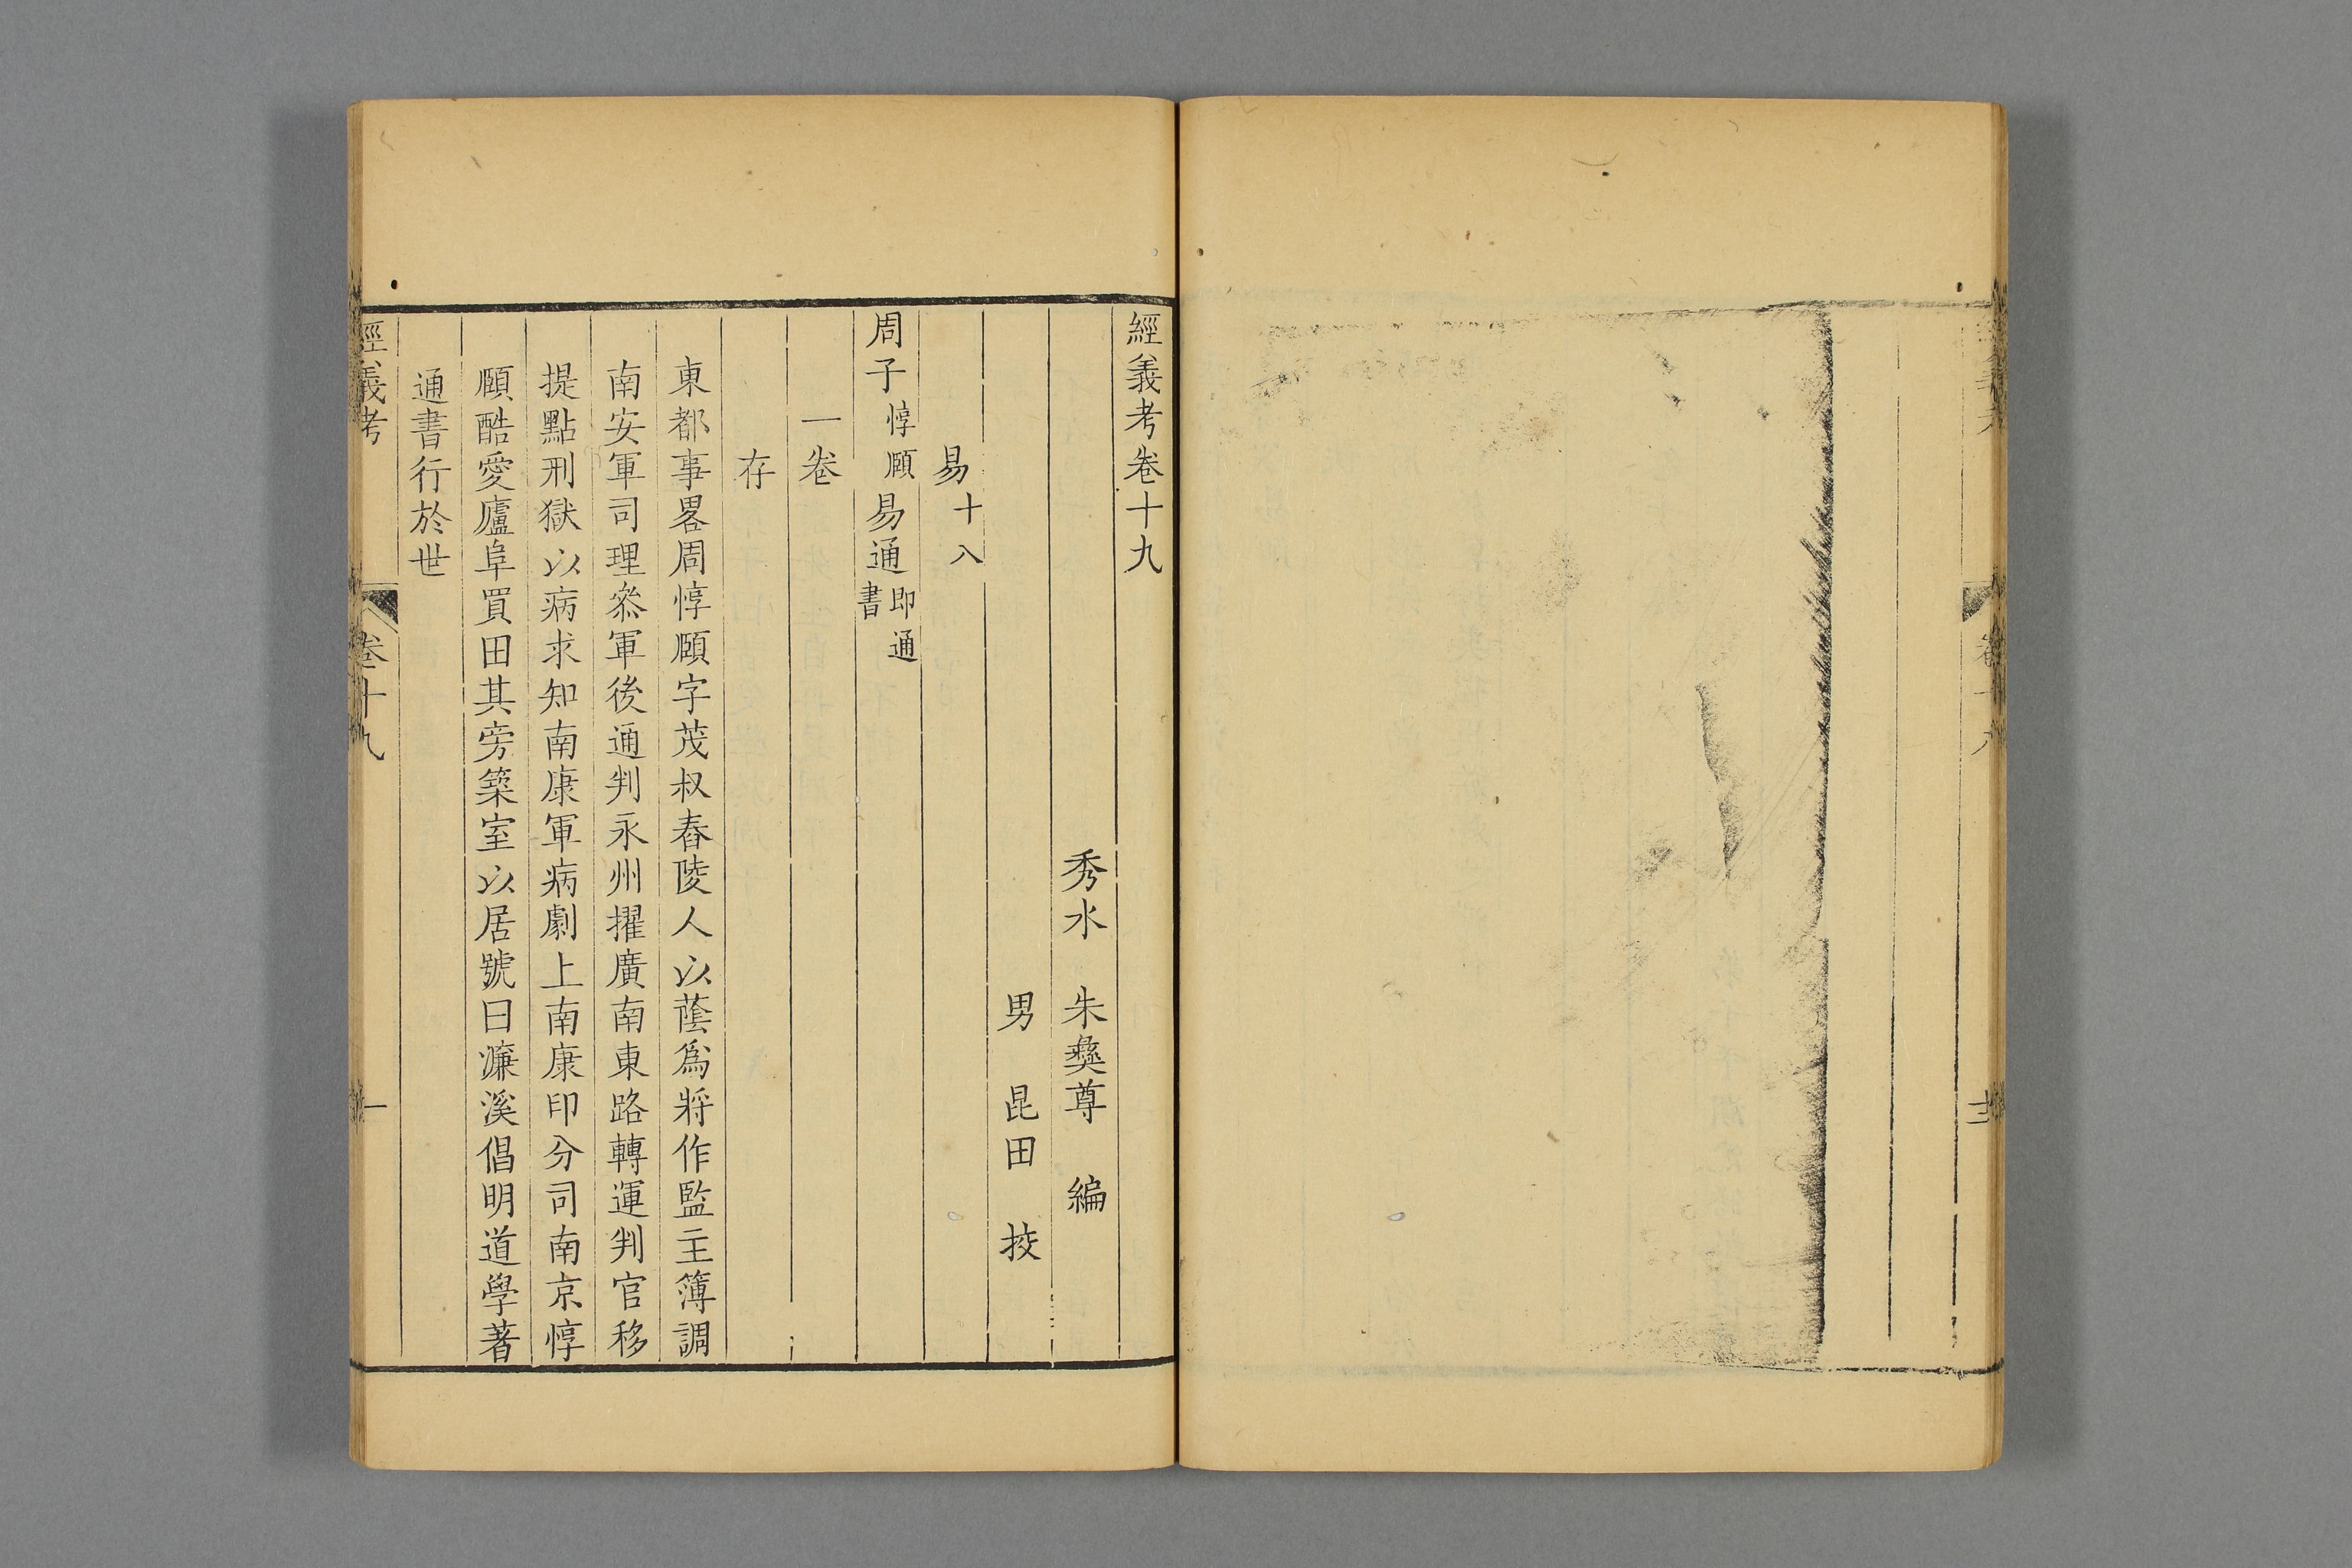 經義考 卷十八
經義考卷十九
秀水 朱彝尊 編
男 昆田 挍
易十八
周子惇頤易通即通書
一卷
存
東都事畧周惇頤字茂叔舂陵人以蔭爲將作監主簿調
南安軍司理叅軍後通判永州擢廣南東路轉運判官移
提點刑獄以病求知南康軍病劇上南康印分司南京惇
頤酷愛廬阜買田其旁築室以居號曰濂溪倡明道學著
通書行於世
經義考 卷十九 一